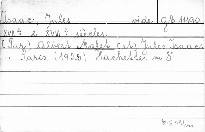 Isaac, Jules vide gB 11190
XVIIe & XVIIIe siècles.
(Par) Albert Malet (et) Jules Isaac
. Paris (1928) Hachette. in 8°